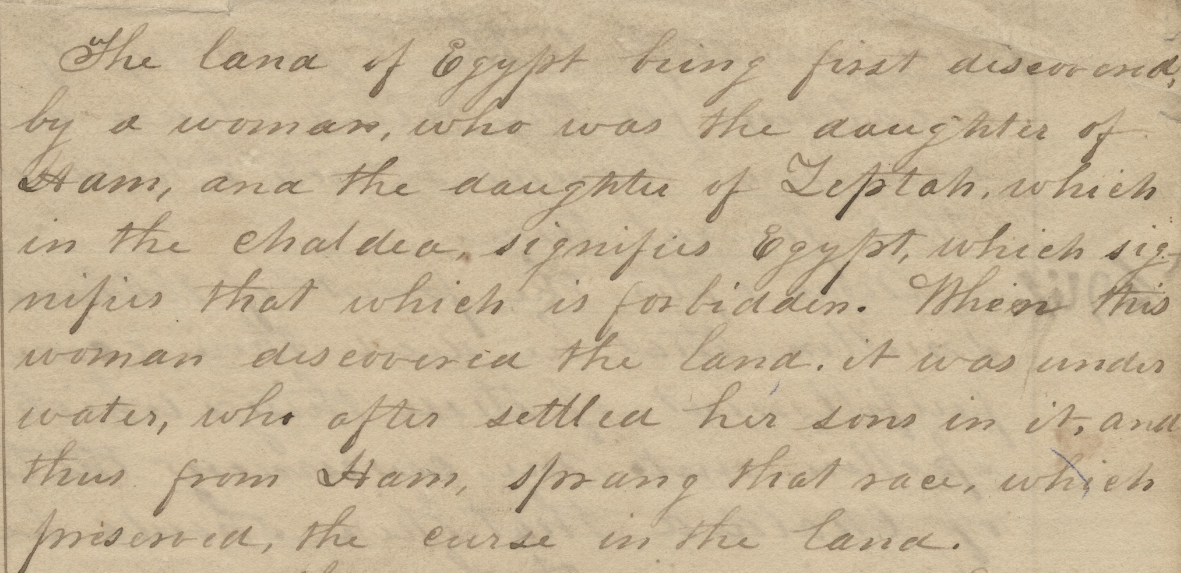 The land of Egypt being first discovered,
by a woman, who was the daughter of
Ham, and the daughter of Zeptah, which
in the chaldea, signifies Egypt, which sig-
nifies that which is forbidden. When this
woman discovered the land. it was under
water, who after settled her sons in it, and
thus from Ham, sprang that race, which
preserved, the curse in the land.